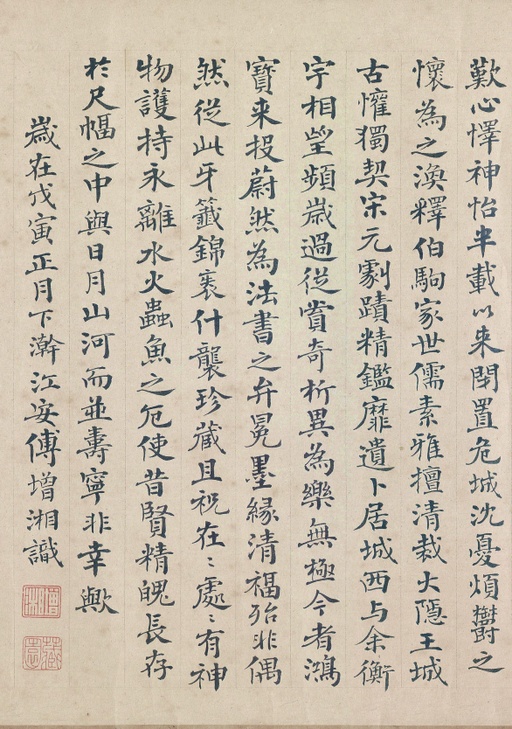 歎心懌神怡半載以来閉置危城沈憂煩鬱之
懷為之渙釋伯駒家世儒素雅擅清裁大隱王城
古懽獨契宋元劇蹟精鑑靡遺卜居城西与余衡
宇相望頻歲過從賞奇析異為樂無極今者鴻
寶来投蔚然為法書之弁冕墨緣清福殆非偶
然從此牙籤錦裹什襲珍藏且祝在〻處〻有神
物護持永離水火蟲魚之厄使昔賢精魄長存
於尺幅之中與日月山河而並壽寧非幸歟
歲在戊寅正月下澣江安傅增湘識
增湘
藏園